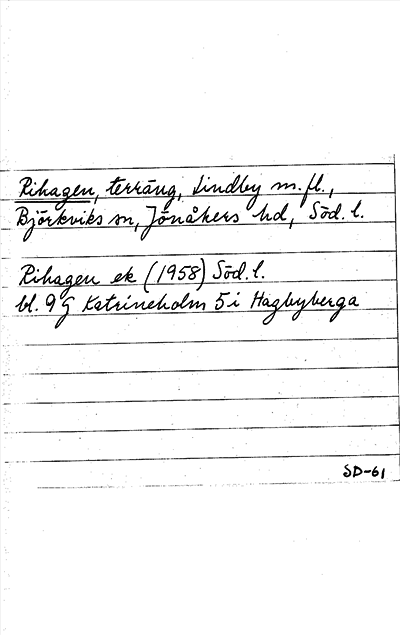 Rihagen, terräng, Lindby m.fl.,
Björkviks sn, Jönåkers hd, Söd. l.
Rihagen ek (1958) Söd. l.
bl. 9 G Katrineholm 5 i Hagbyberga
SD-61